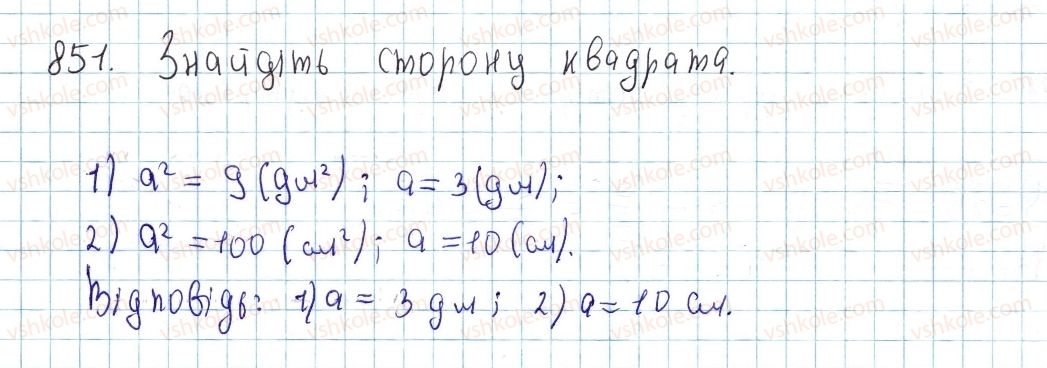 851. Знайдіть сторону квадрата.
1) a² = 9 (дм²); a = 3 (дм);
2) a² = 100 (см²); a = 10 (см).
Відповідь: 1) a = 3 дм; 2) a = 10 см.